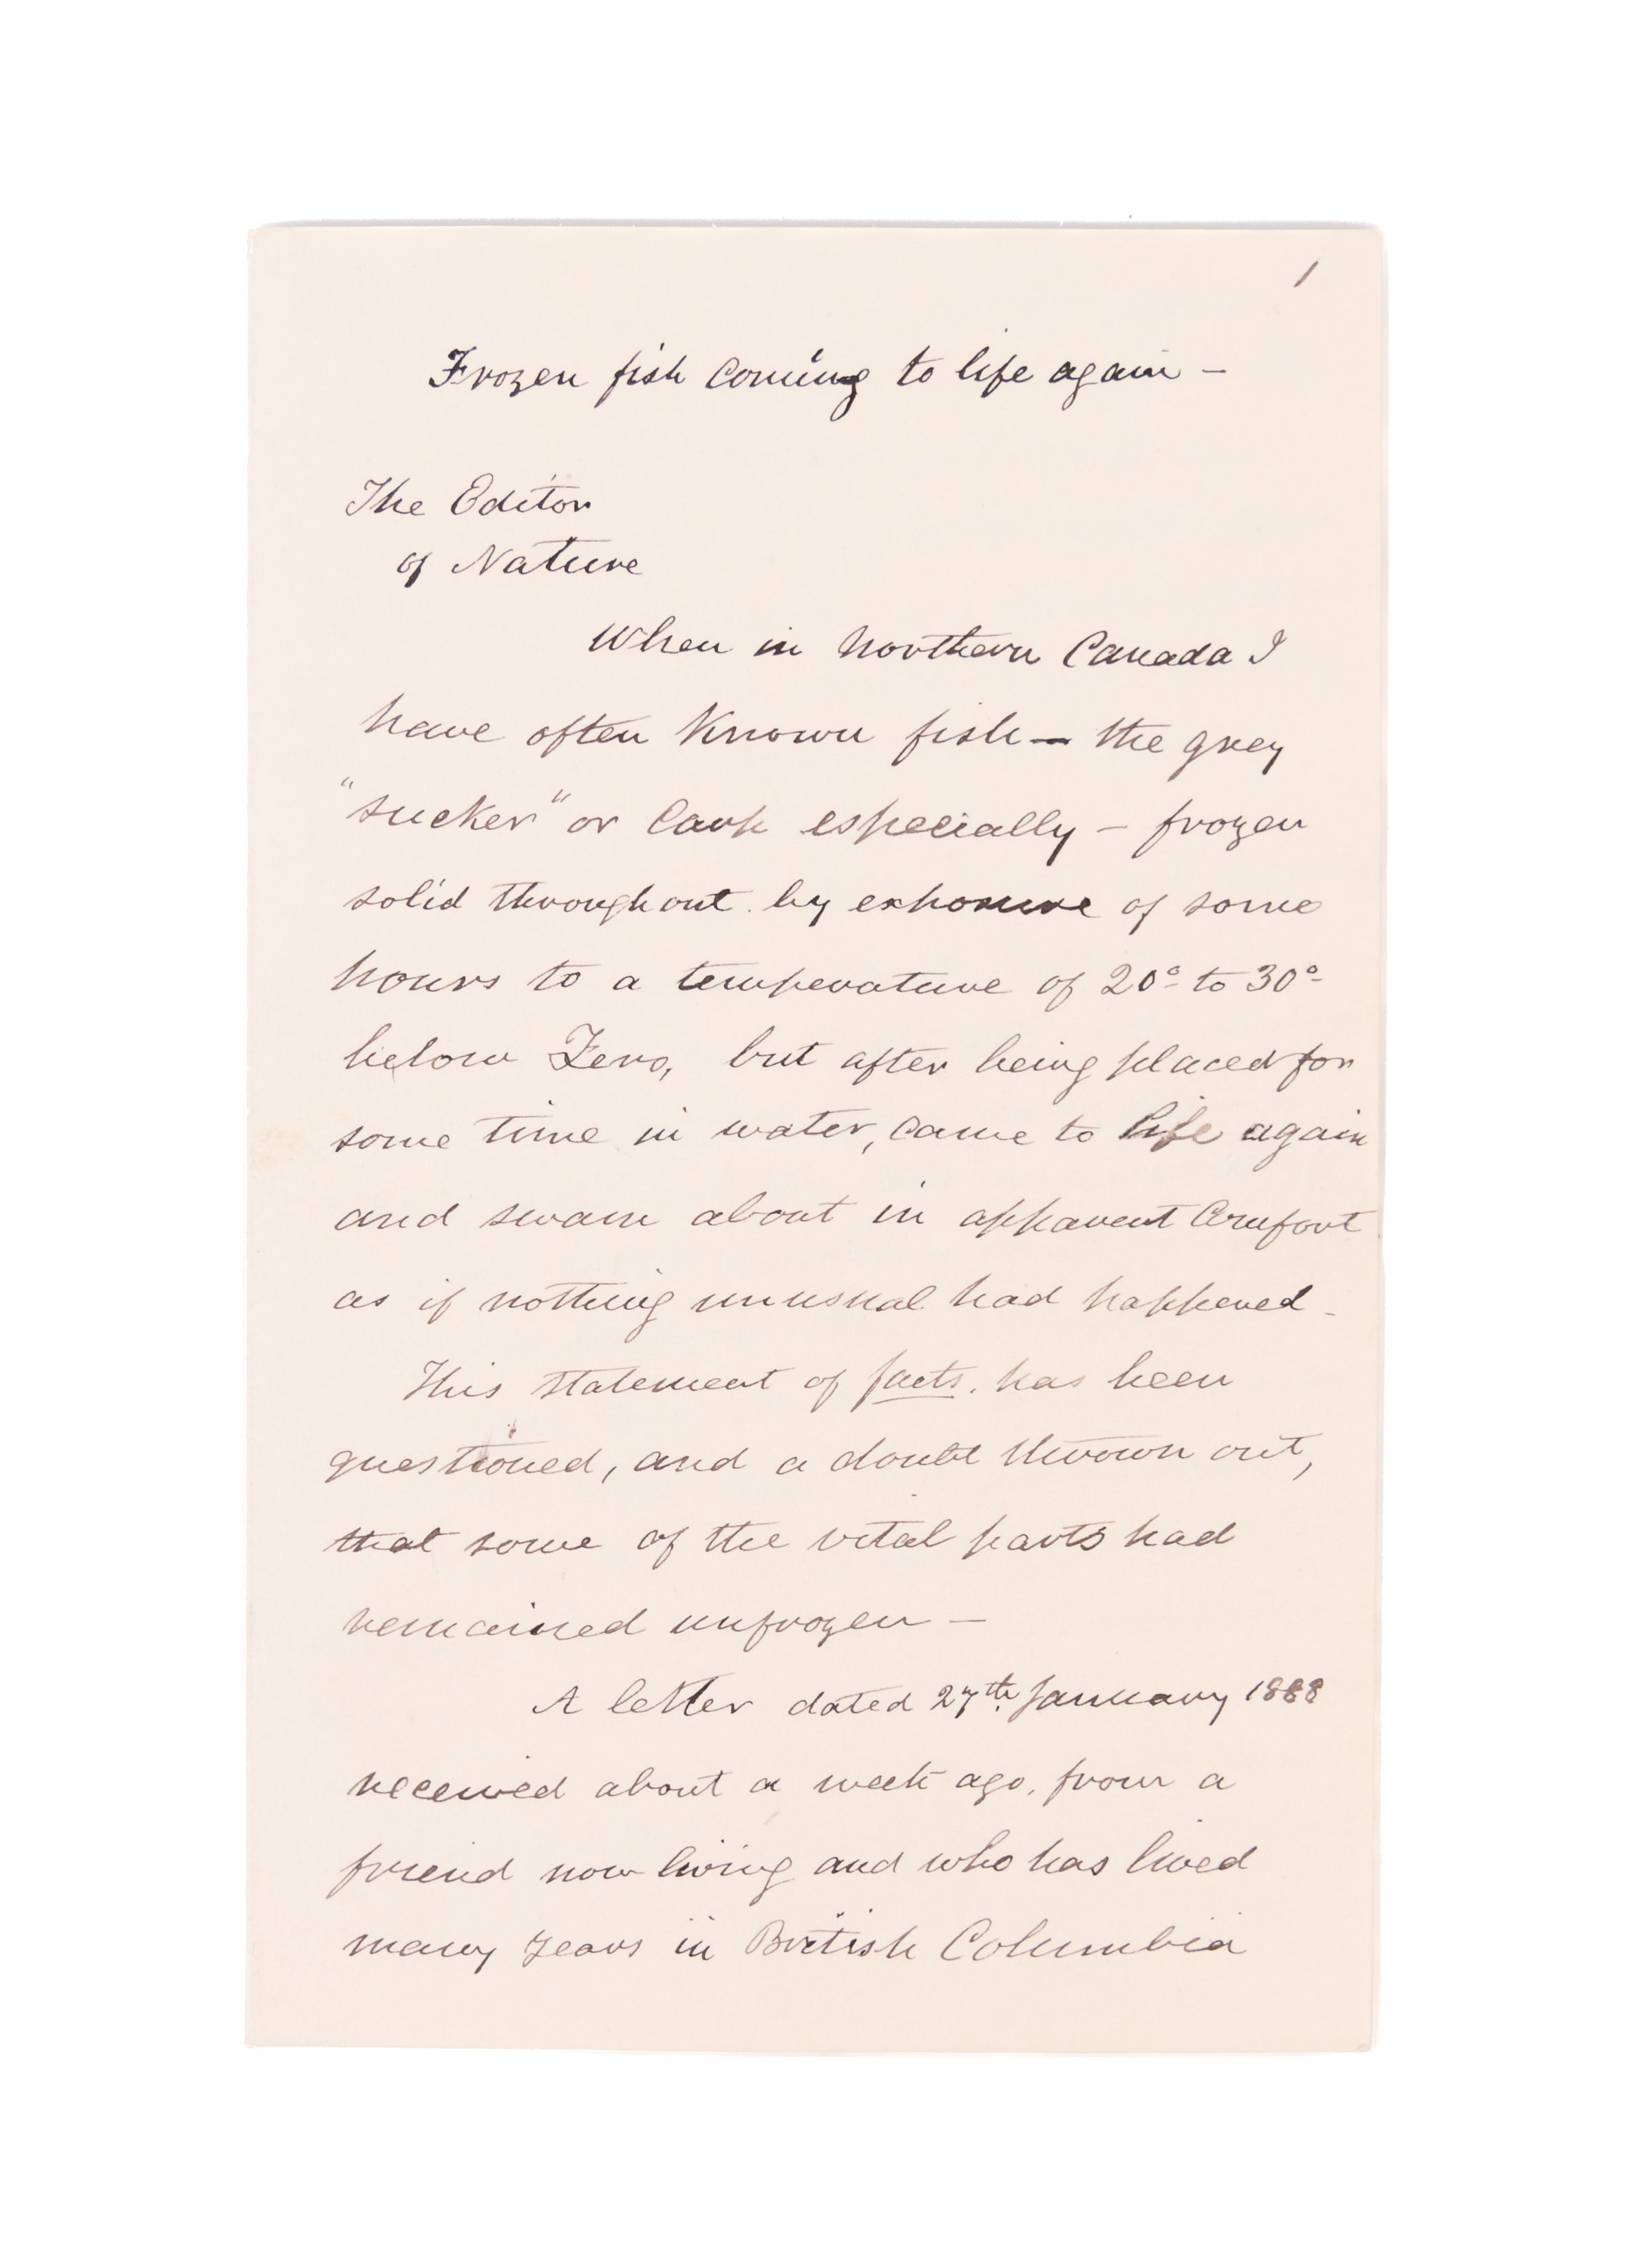 1
Frozen fish coming to life again –
The Editor
of Nature
When in Northern Canada I
have often known fish – the grey
"sucker" or Carp especially – frozen
solid throughout by exposure of some
hours to a temperature of 20° to 30°
below Zero, but after being placed for
some time in water, came to life again
and swam about in apparent comfort
as if nothing unusual had happened –
This statement of facts, has been
questioned, and a doubt thrown out,
that some of the vital parts had
remained unfrozen –
A letter dated 27th January 1888
received about a week ago, from a
friend now living and who has lived
many years in British Columbia